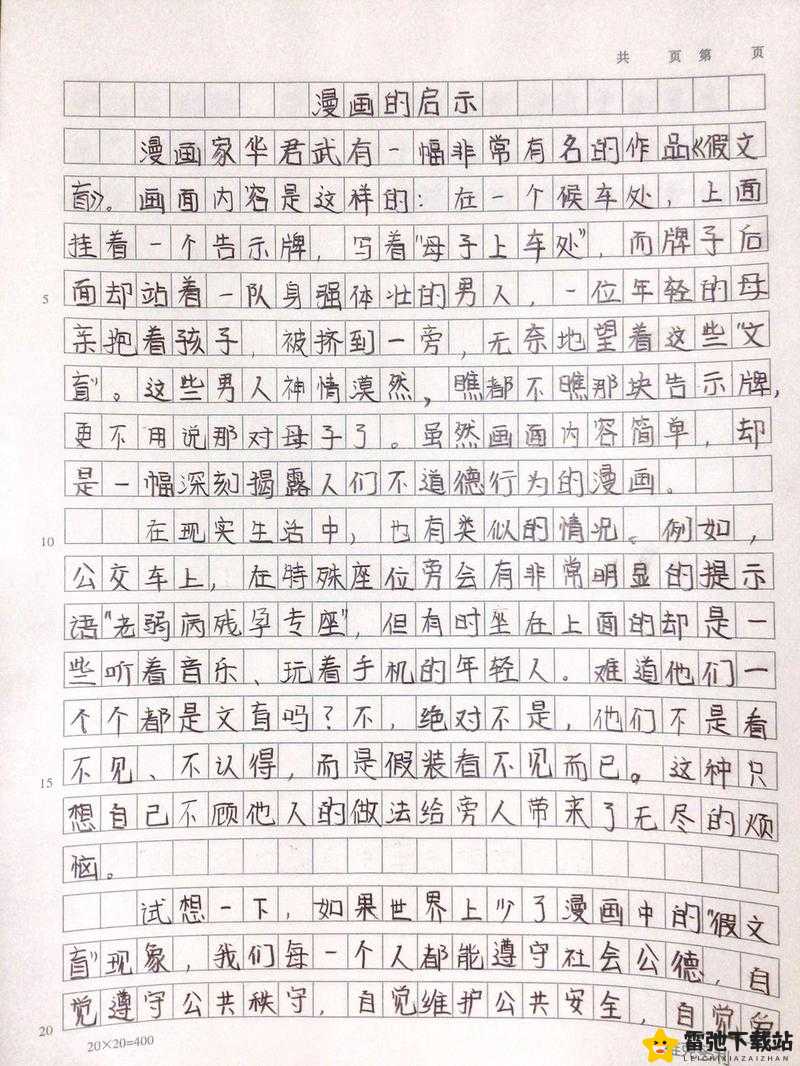 共 页 第 页
漫画的启示
漫画家华君武有一幅非常有名的作品《假文
盲》。画面内容是这样的：在一个候车处，上面
挂着一个告示牌，写着"母子上车处"，而牌子后
5 面却站着一队身强体壮的男人，一位年轻的母
亲抱着孩子，被挤到一旁，无奈地望着这些"文
盲"。这些男人神情漠然，瞧都不瞧那块告示牌，
更不用说那对母子了。虽然画面内容简单，却
是一幅深刻揭露人们不道德行为的漫画。
10 在现实生活中，也有类似的情况。例如，
公交车上，在特殊座位旁会有非常明显的提示
语"老弱病残孕专座"，但有时坐在上面的却是一
些听着音乐、玩着手机的年轻人。难道他们一
个个都是文盲吗？不，绝对不是，他们不是看
15 不见、不认得，而是假装看不见而已。这种只
想自己不顾他人的做法给旁人带来了无尽的烦
恼。
试想一下，如果世界上少了漫画中的"假文
盲"现象，我们每一个人都能遵守社会公德，自
20 觉遵守公共秩守，自觉维护公共安全，自觉
20×20=400
雷弛下载站
LEICHIXIAZAIZHAN